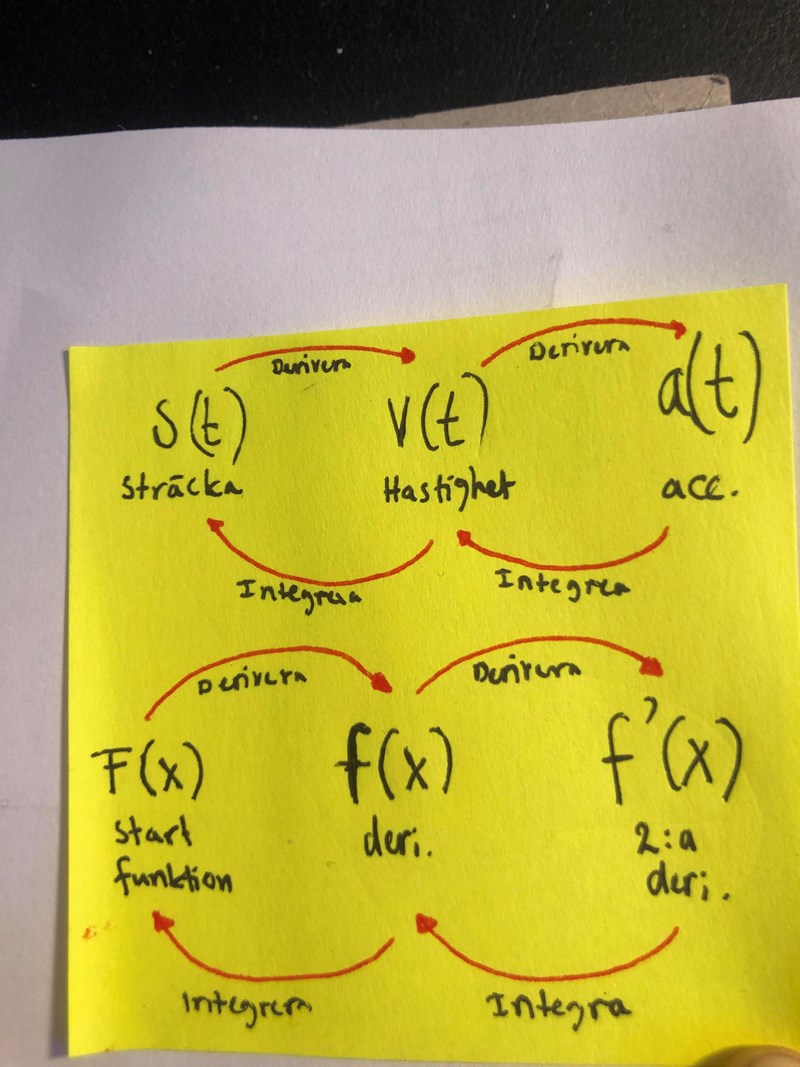 Derivera Derivera
S(t) V(t) a(t)
Sträcka Hastighet acc.
Integrera Integrera
Derivera Derivera
F(x) f(x) f'(x)
Start deri. 2:a
funktion deri.
Integrera Integra